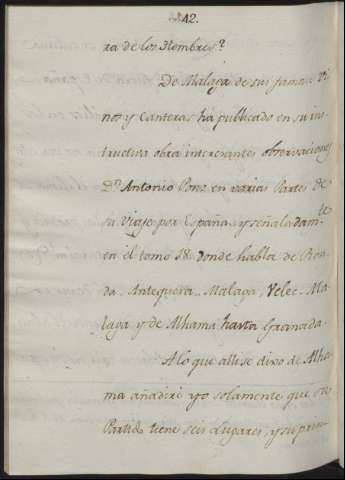 42.
ra de los Hombres?
De Malaga de sus famosos Vi
nos y Canteras ha publicado en su ins
tructiva obra interesantes observaciones
Dn. Antonio Ponz en varias Partes de
su Viaje por España, y señaladamte.
en el tomo 18. donde habla de Ron
da. Antequera. Malaga, Velez-Ma
laga y de Alhama hasta Granada.
A lo que alli se dixo de Alha
ma añadiré yo solamente que su
Partido tiene seis Lugares, y su